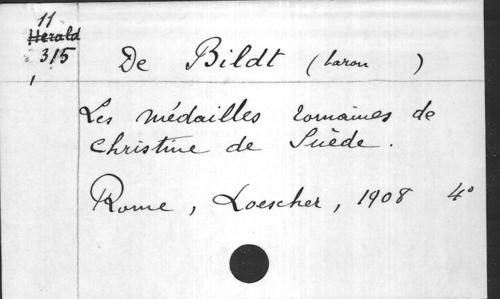 11
Herald
315
1
De Bildt (baron )
Les médailles romaines de
Christine de Suède.
Rome, Loescher, 1908 4°